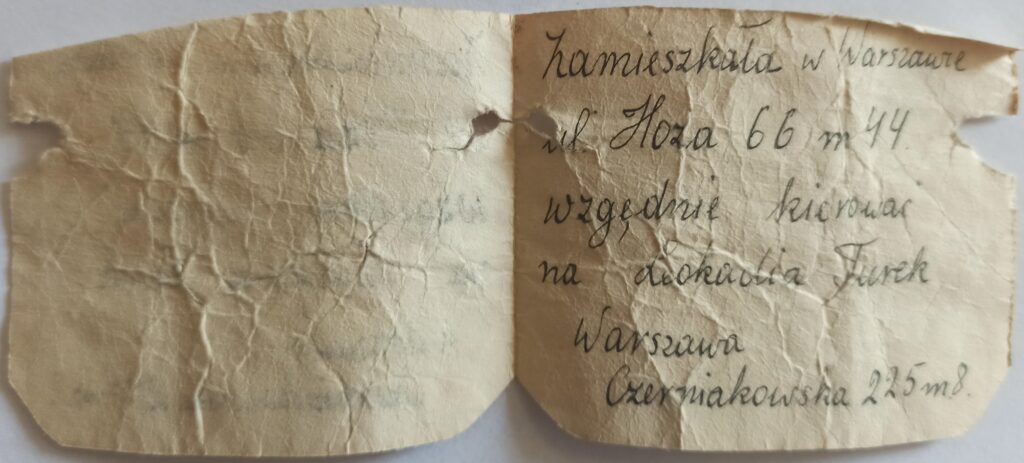 zamieszkała w Warszawie
ul. Hoza 66 m 44.
wzgędnie kierować
na Leokadia Turek
Warszawa
Czerniakowska 225 m 8.